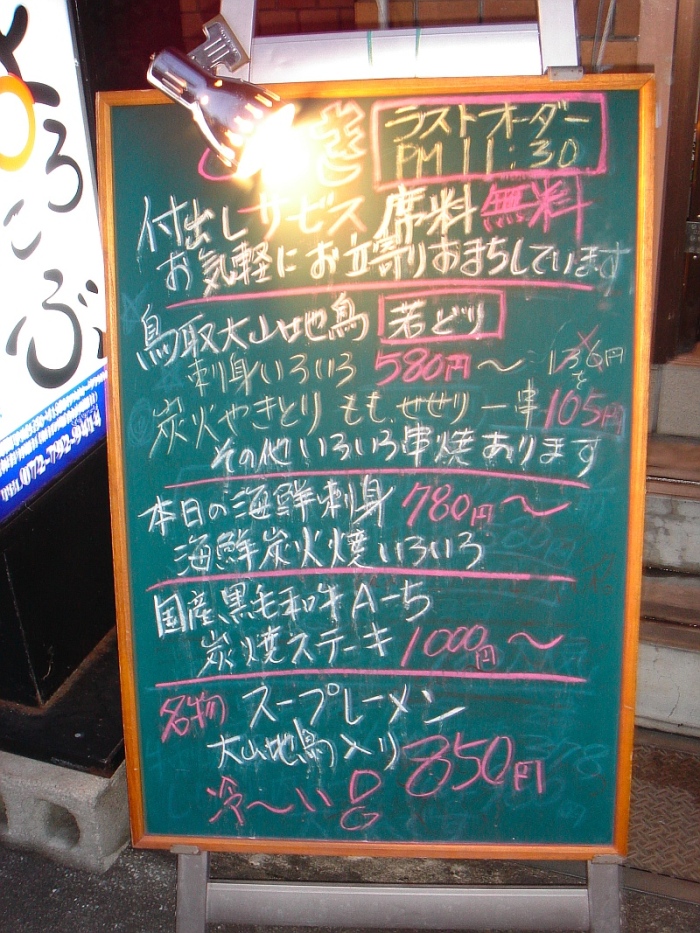 よろこぶ
ラストオーダー
PM 11:30
付出しサービス 席料 無料
お気軽にお立寄りおまちしています
鳥取大山地鳥 若どり
刺身いろいろ 580円〜
炭火やきとり もも、せせり 一串 105円
を
その他いろいろ串焼あります
本日の海鮮刺身 780円〜
海鮮炭火焼いろいろ
国産黒毛和牛 A-5
炭焼ステーキ 1000円〜
名物 スープレーメン
大山地鳥入り 850円
冷〜い